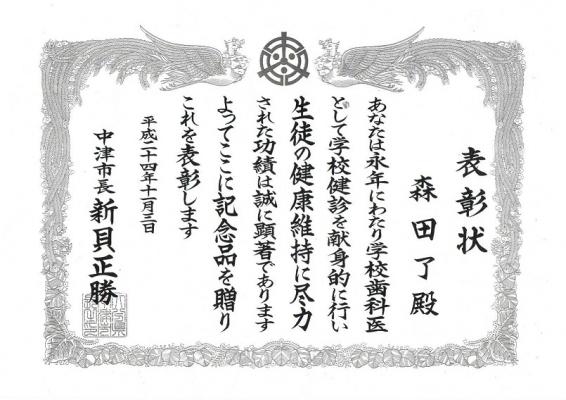 表彰状
森田了殿
あなたは永年にわたり学校歯科医
として学校健診を献身的に行い
生徒の健康維持に尽力
された功績は誠に顕著であります
よってここに記念品を贈り
これを表彰します
平成二十四年十一月三日
中津市長 新貝正勝